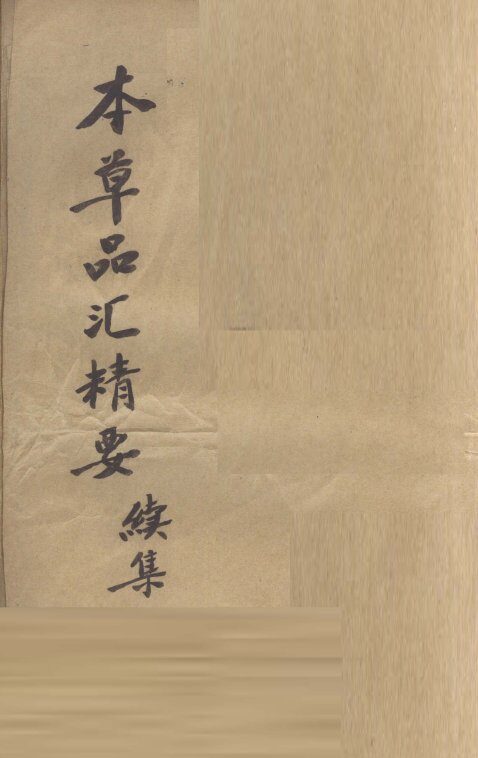 本草品汇精要
续集